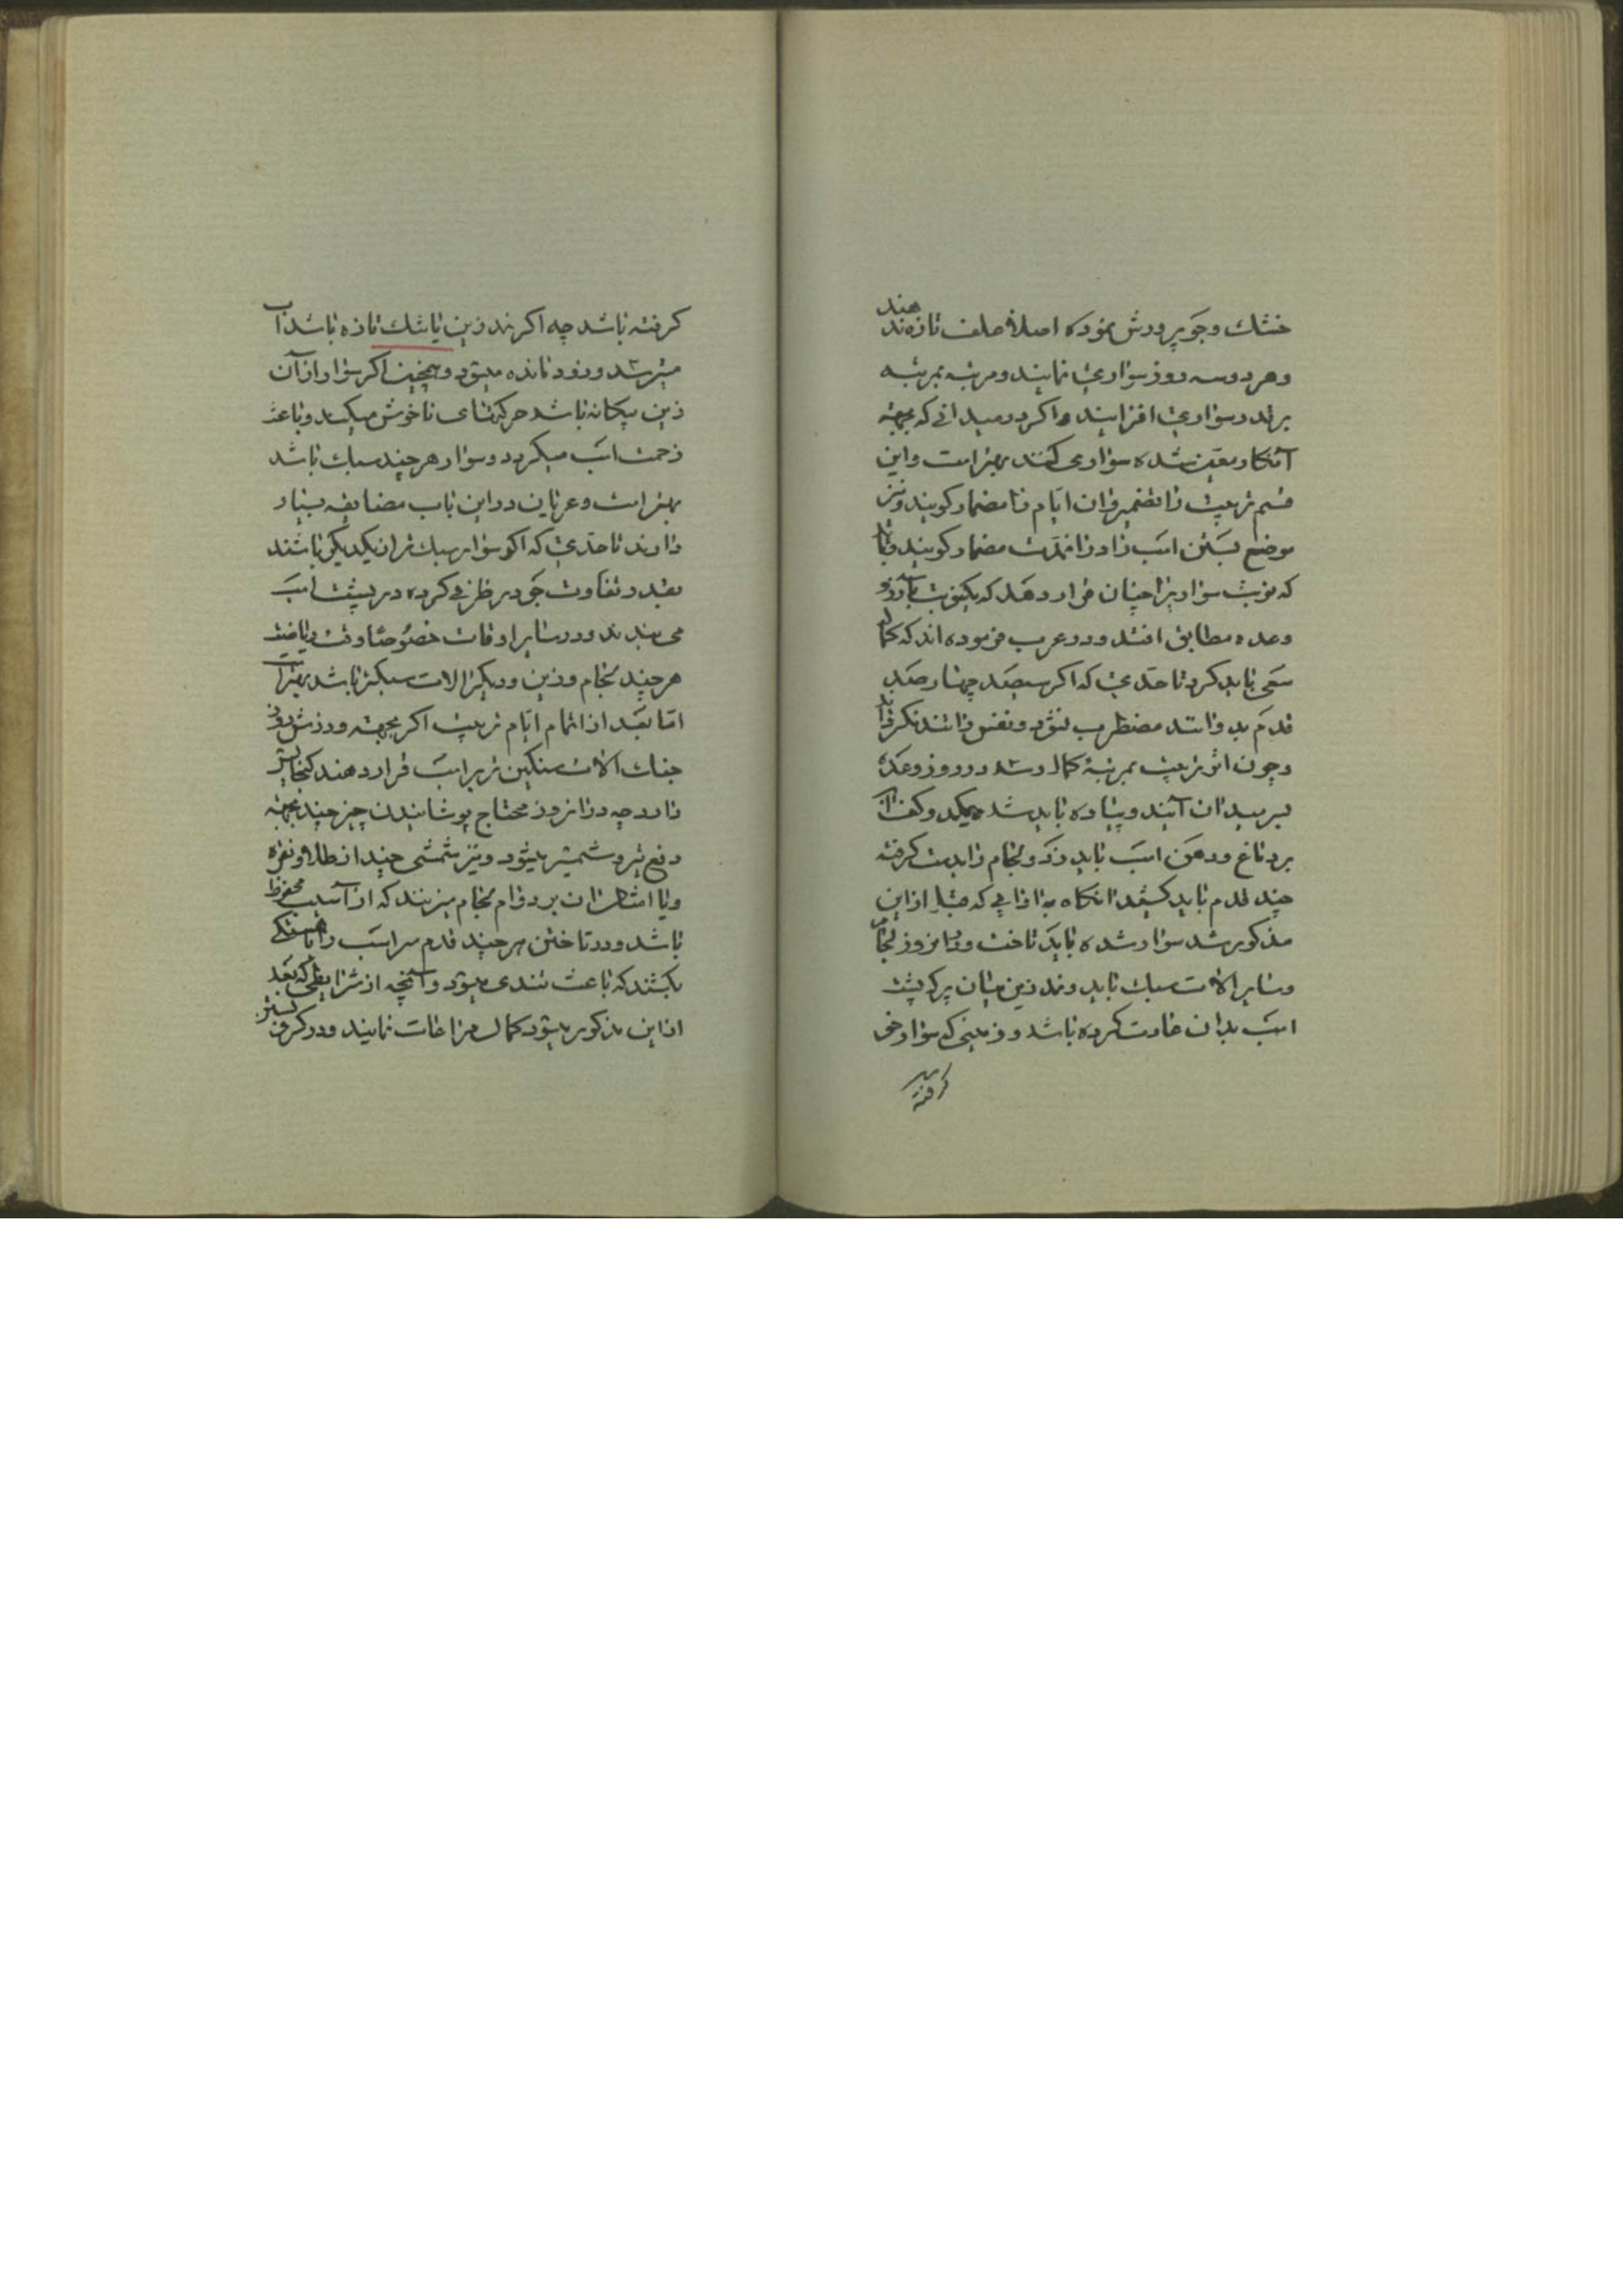 خشك وجو پرورش نموده اصلا علف تازه ندهند
وهر دو سه روز سواری نمایند ومرتبه بمرتبه
برتد وسواری افزایند و اگر در میدانی که بجهته
آنکار معین شده سواری کنند بهتر است واین
قسم تربیت را تضمیر وان ایام را مضمار گویند ونیز
موضع بستن اسب را در انمدت مضمار گویند وباید
که نوبت سواریرا چنان قرار دهد که یکنوبت با روز
وعده مطابق افتد ودر عرب فرموده اند که کمال
سعی باید کرد تا حدی که اگر سیصد چهار صد
قدم بدوانند مضطرب نشود ونفس را تند نکرداند
وچون اثر تربیت بمرتبۀ کمال رسد در روز وعده
بر میدان آیند وپیاده باید شد وکف
بر دماغ ودهن اسب باید زد ولجام را بدست گرفته
چند قدم باید کشید انکاه به ادابی که قبل از این
مذکور شد سوار شده باید تاخت ودر انروز لجام
وسایر الات سبك باید ونمد زین میان پر که پشت
اسب بدان عادت کرده باشد وزینی که سوار خو
گرفته
گرفته باشد چه اگر نمد زین یا تشك تازه باشد اسب
میترسد وزود مانده میشود وهمچنین اگر سوار از آن
زین بیکانه باشد حرکتهای ناخوش میکند وباعث
زحمت اسب میکردد وسوار هر چند سبك باشد
بهتر است وعربان در این باب مضایقه بسیار
دارند تا حدی که اگر سوار سبك تر از یکدیکر باشند
بقدر تفاوت جو در ظرفی کرده در پشت اسب
می بندند ودر سایر اوقات خصوصا وقت ریاضت
هر چند لجام وزین ودیکر الات سبکتر باشد بهتر است
اما بعد از اتمام ایام تربیت اگر بجهته ورزش روز
جنك الات سنکین تر بر اسب قرار دهند کنجایش
دارد چه در انروز محتاج پوشانیدن چیز چند بجهته
دفع تیر وشمشیر میشود ونیز شمشی چند از طلا ونقره
ویا امثال ان بر دوام لجام میزنند که از آسیب محفوظ
باشد ودر تاختن هر چند قدم سر اسب را باهستکی
بکشند که باعث تندی میشود وآنچه از شرایطی که بعد
از این مذکور میشود کمال مراعات نمایند ودر کرو بستن